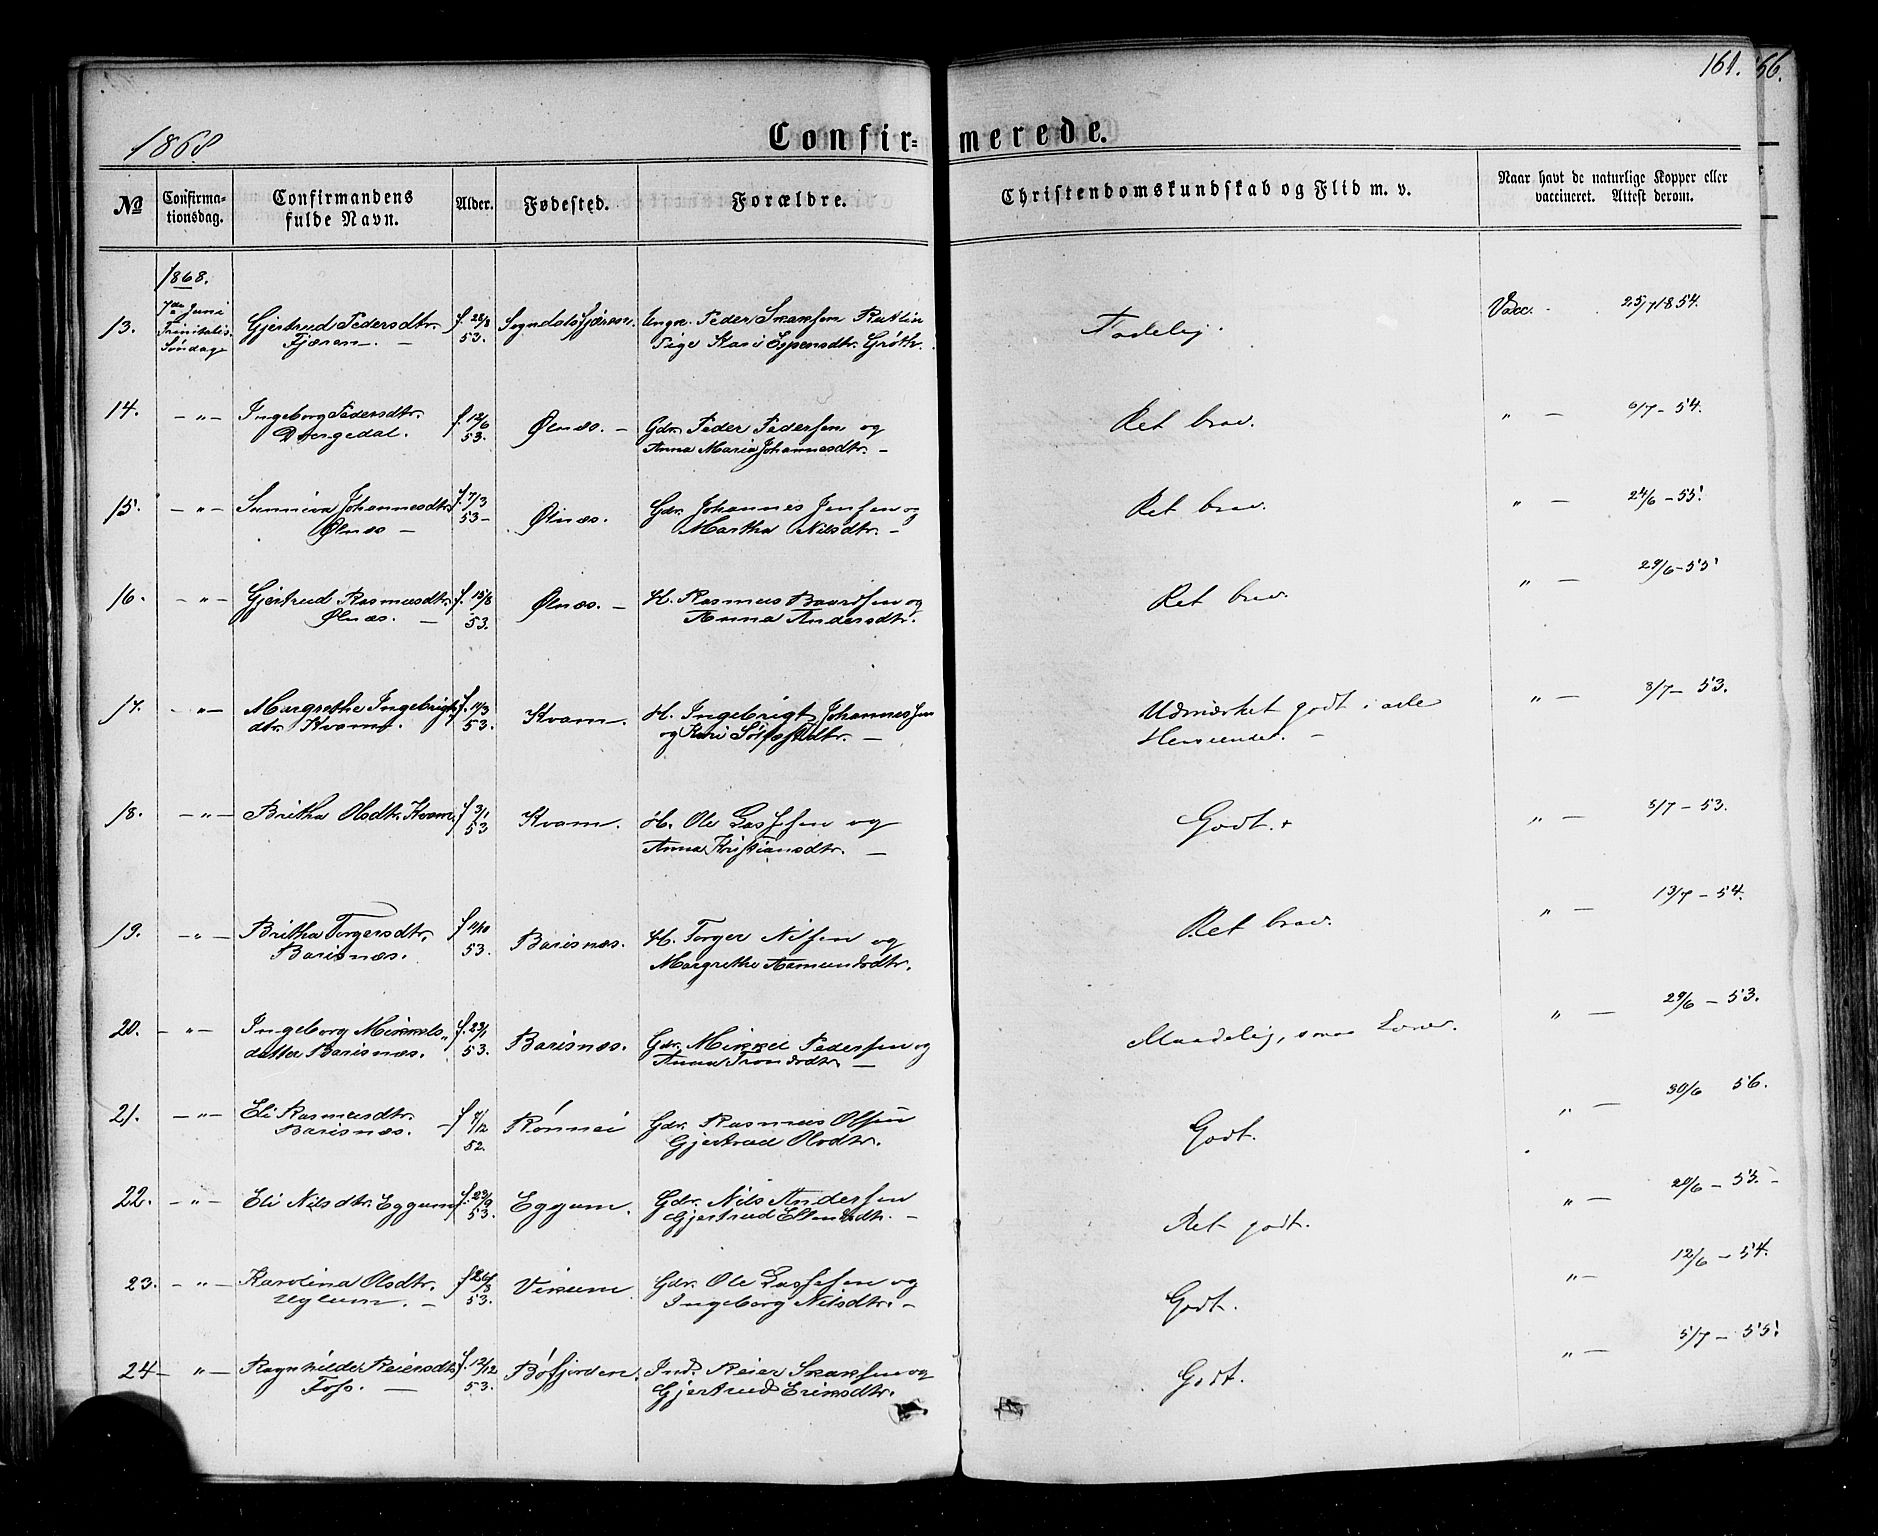 161. 56.
1868
Confir= merede.
№
Confirma-
tionsdag.
Confirmandens
fulde Navn.
Alder.
Fødested.
Forældre.
Christendomskundskab og Flid m. v.
Naar havt de naturlige Kopper eller
vaccineret. Attest derom.
1868.
13. 7de Juni Gjertrud Pedersdtr. f. 28/8 Sogndalsfjæren. Ungk. Peder Isaksen Rutlin Tadelig. Vacc. 25/7 1854.
Trinitatis Fjæren. — 53. Pige Kari Espensdtr. Grøth.
Søndag
14. — " — Ingeborg Pedersdtr. f. 12/6 Ølnæs. — Gdr. Peder Pedersen og Ret brav. " — 6/7 - 54.
Dvergedal. 53. Anna Maria Johannesdtr. —
15. — " — Sunniva Johannesdtr. f. 7/3 Ølnæs. Gdr. Johannes Jensen og Ret brav. " — 24/6 - 55.
Ølnæs — 53 - Martha Nilsdtr. —
16. — " — Gjertrud Rasmusdtr. f. 15/8 Ølnæs. — H. Rasmus Baardsen og Ret brav. " — 29/6 - 55
Ølnæs. — 53. Anna Andersdtr.
17. — " — Margrethe Ingebrigts f. 11/3 Kvam. H. Ingebrigt Johannessen Udmærket godt i alle " — 8/7 - 53.
dtr. Kvam. 53. og Kari Sjursdtr. — Henseender. —
18. — " — Britha Olsdtr. Kvam. f. 3/1 Kvam. H. Ole Lassesen og Godt. " — 5/7 - 53.
53 Anna Kristiansdtr. —
19. — " — Britha Torgersdtr. f. 11/10 Barsnæs. H. Torger Nilsen og Ret brav. " — 13/7 - 54.
Barsnæs. 53. Margrethe Aamundsdtr.
20. — " — Ingeborg Mikkels„ f. 23/1 Barsnæs. Gdr. Mikkel Pedersen og Maadelig, smaa Evner. " — 29/6 - 53.
datter Barsnæs. 53. Anna Trondsdtr. —
21. — " — Eli Rasmusdtr. f. /12 Rønnei Gdr. Rasmus Olsen Godt. " — 30/6 56.
Barsnæs. — 52. Gjertrud Olsdtr.
22. — " — Eli Nilsdtr. Eggum f. 23/9 Eggum. Gdr. Nils Andersen Ret godt. " — 20/6 - 53. -
53. Gjertrud Ellendsdtr. —
23. — " — Karolina Olsdtr. f. 26/3 Vikum Gdr. Ole Lassesen og Godt. " — 12/6 - 54.
Uglum. — 53. Ingeborg Nilsdtr. —
24 — " — Ragnhilde Reiersdtr. f. 12/12 Bøfjorden. Inds. Reier Isaksen og Godt. " — 5/7 - 55.
Foss. — 53. Gjertrud Eriksdtr.